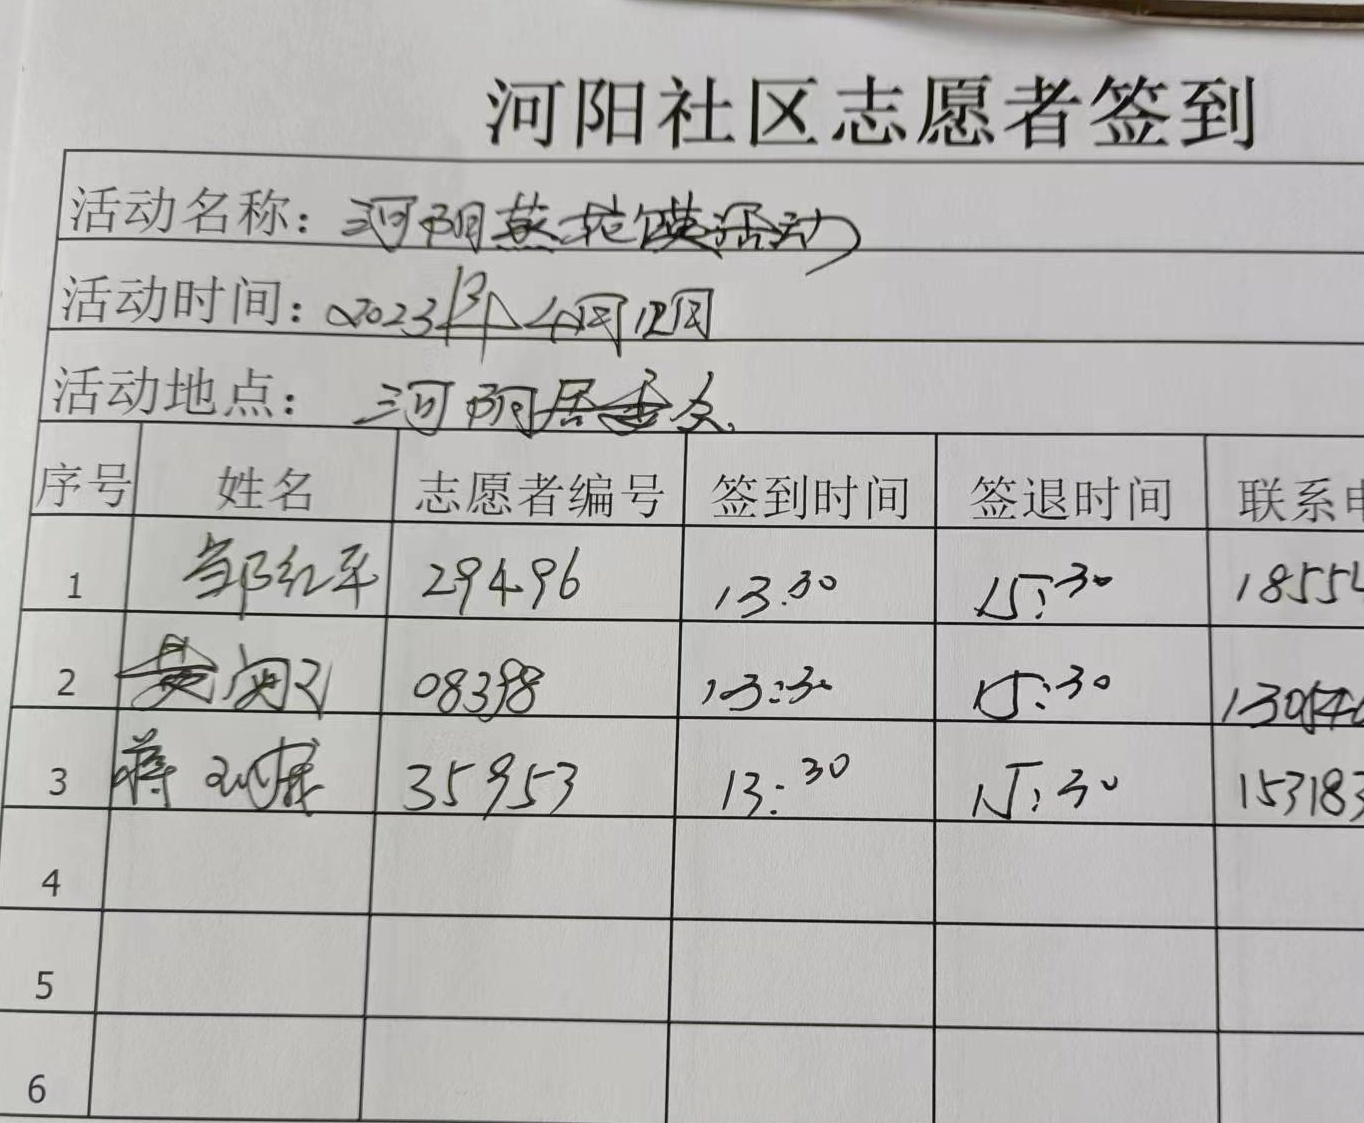 河阳社区志愿者签到
活动名称：河阳蒸花馍活动
活动时间：2023年4月12日
活动地点：河阳居委会
序号 姓名 志愿者编号 签到时间 签退时间 联系电
1 邹红军 29496 13:30 15:30 1855
2 黄 08398 13:30 15:30 130
3 蒋 35953 13:30 15:30 153183
4
5
6